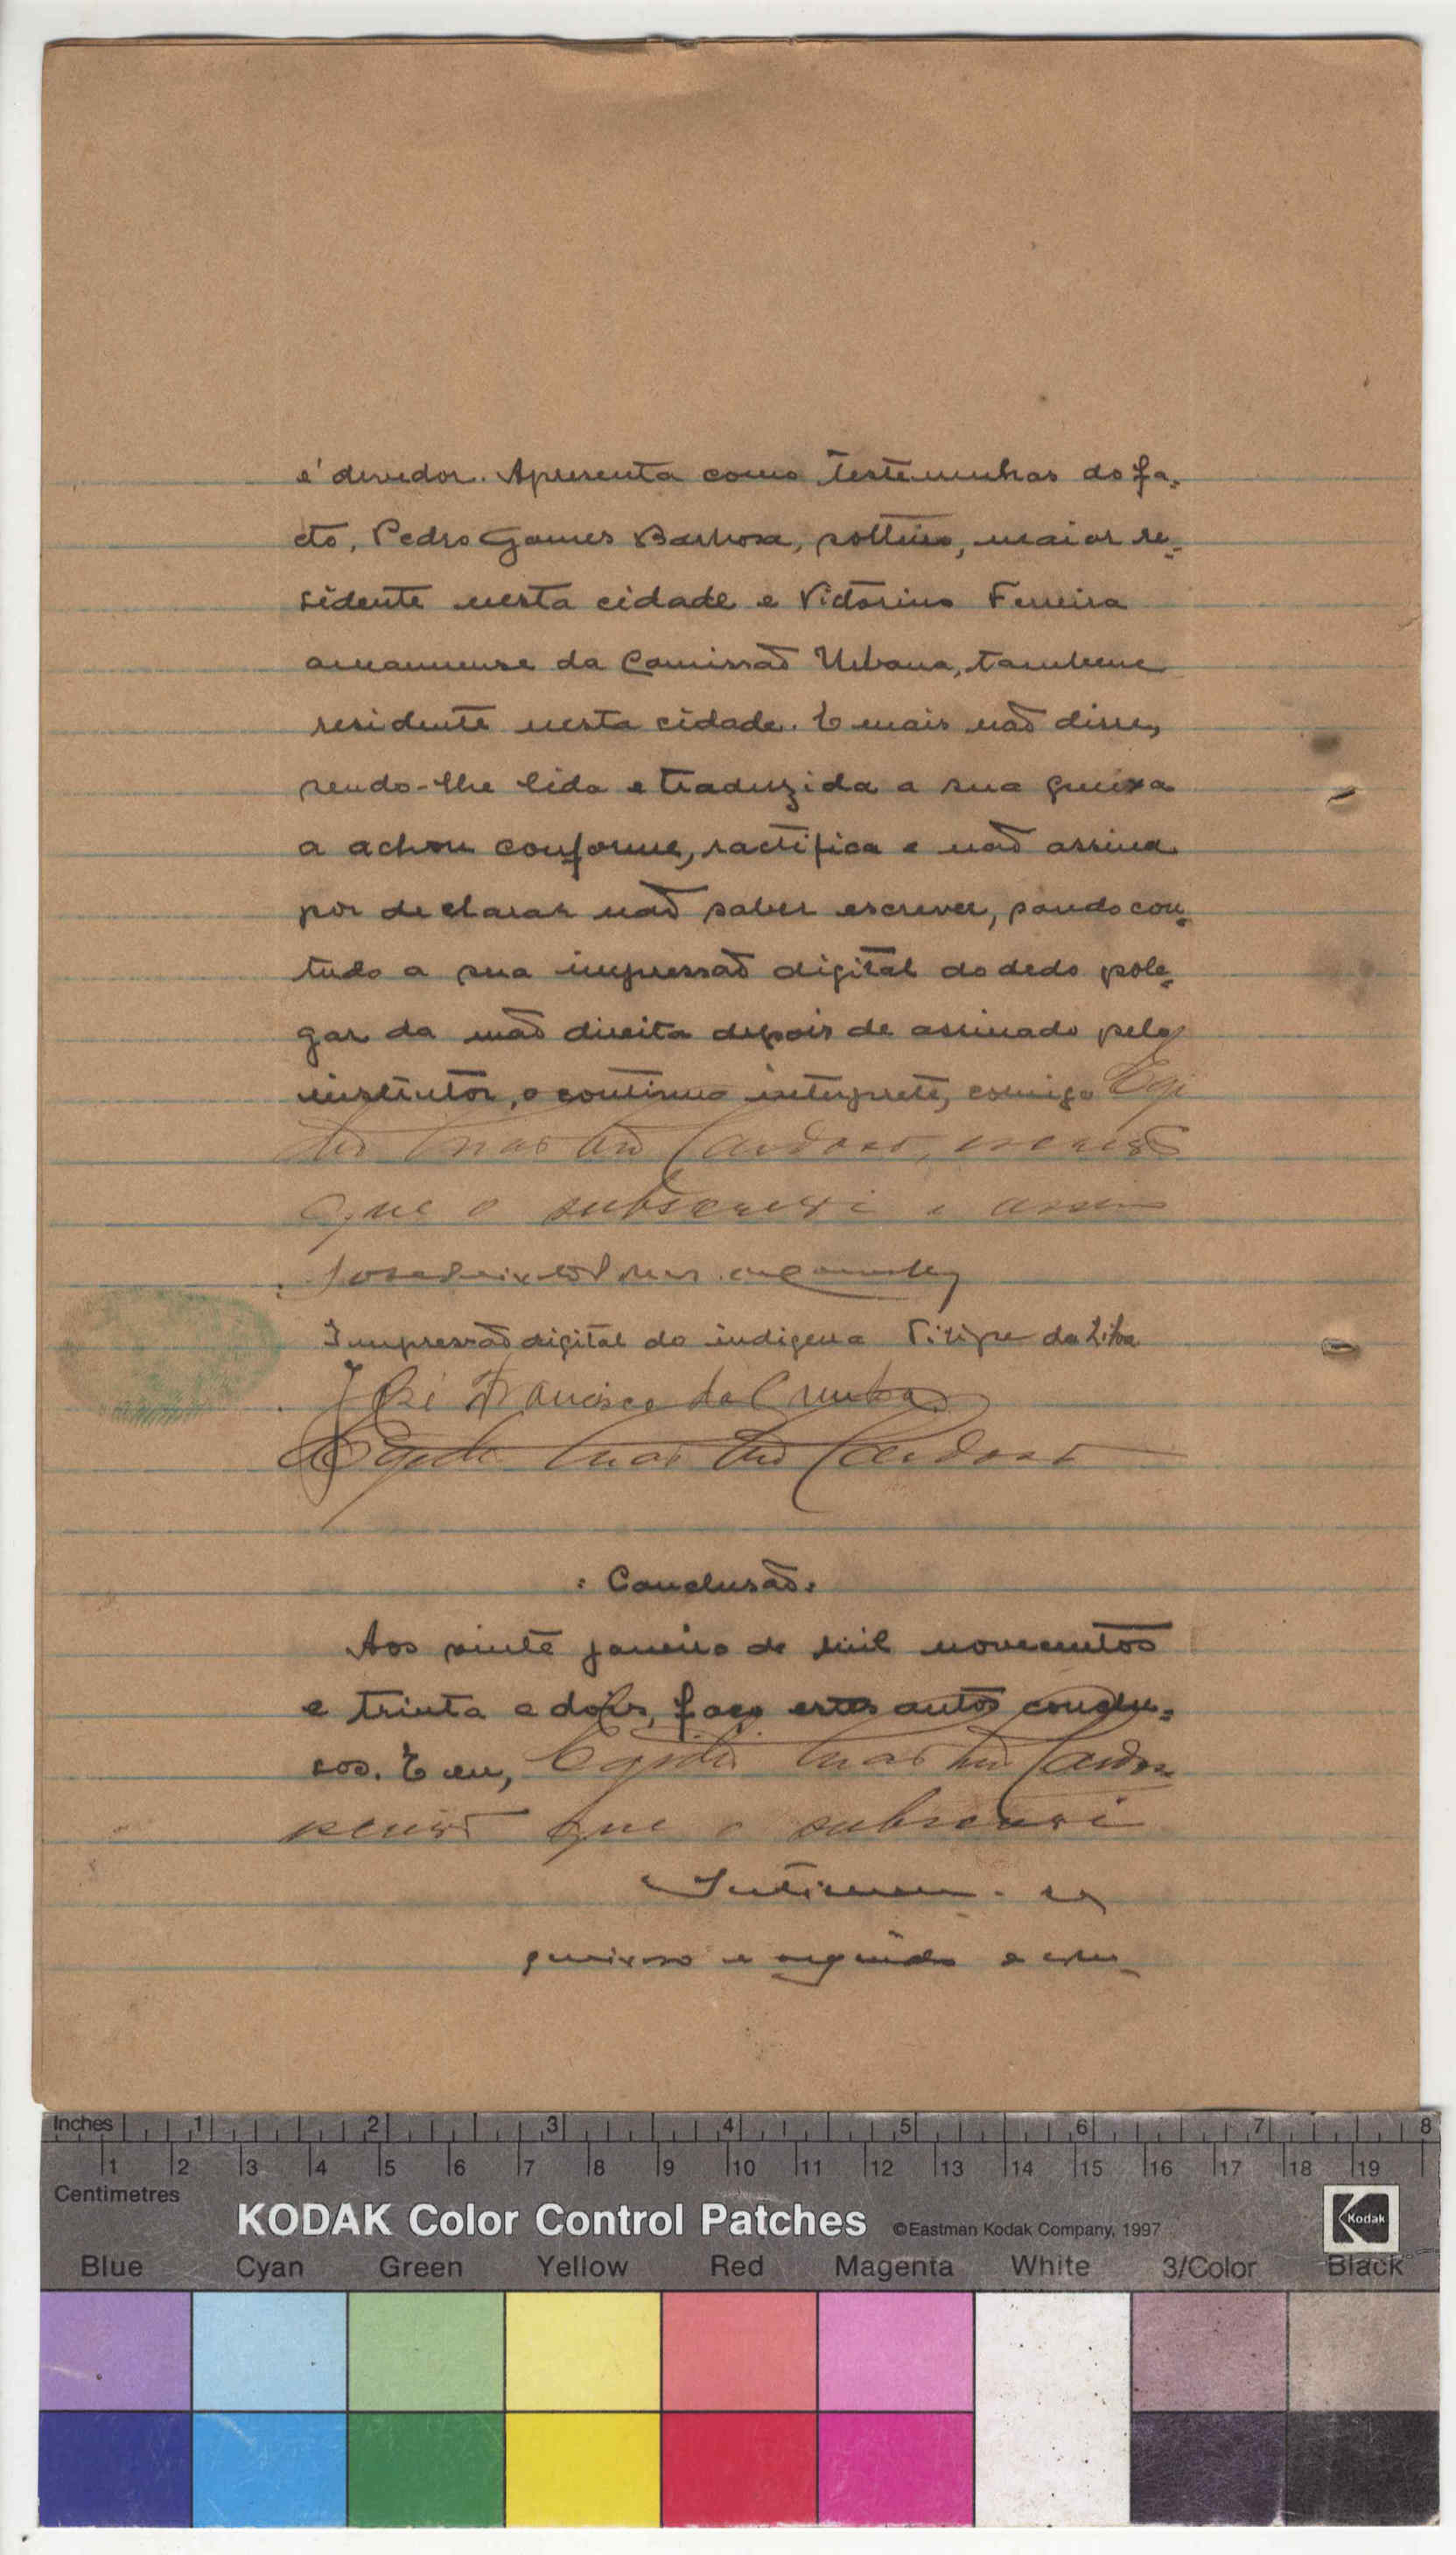 é devedor. Apresenta como testemunhas do fa-
cto, Pedro Gomes Barbosa, solteiro, maior re-
sidente nesta cidade e Victorino Ferreira
amanuense da Comissão Urbana, tambem
residente nesta cidade. E mais não disse,
sendo-lhe lida e traduzida a sua queixa
a achou conforme, ractifica e não assina
por declarar não saber escrever, pondo con-
tudo a sua impressão digital do dedo pole-
gar da mão direita depois de assinado pelo
instrutor, o continuo interprete, comigo Egi
dio Martins Cardoso, escrivão
que o subscrevi e assino
José
Impressão digital do indigena Filipe da Silva
José Francisco da Cunha
Egidio Martins Cardoso
: Conclusão:
Aos vinte janeiro de mil novecentos
e trinta e dois, faço estes autos conclu-
sos. E eu, Egidio Martins Cardoso
escrivão que o subscrevi
Intimem-se
queixoso e arguido a
Inches 1 2 3 4 5 6 7 8
1 2 3 4 5 6 7 8 9 10 11 12 13 14 15 16 17 18 19
Centimetres
KODAK Color Control Patches ©Eastman Kodak Company, 1997 Kodak
Blue Cyan Green Yellow Red Magenta White 3/Color Black